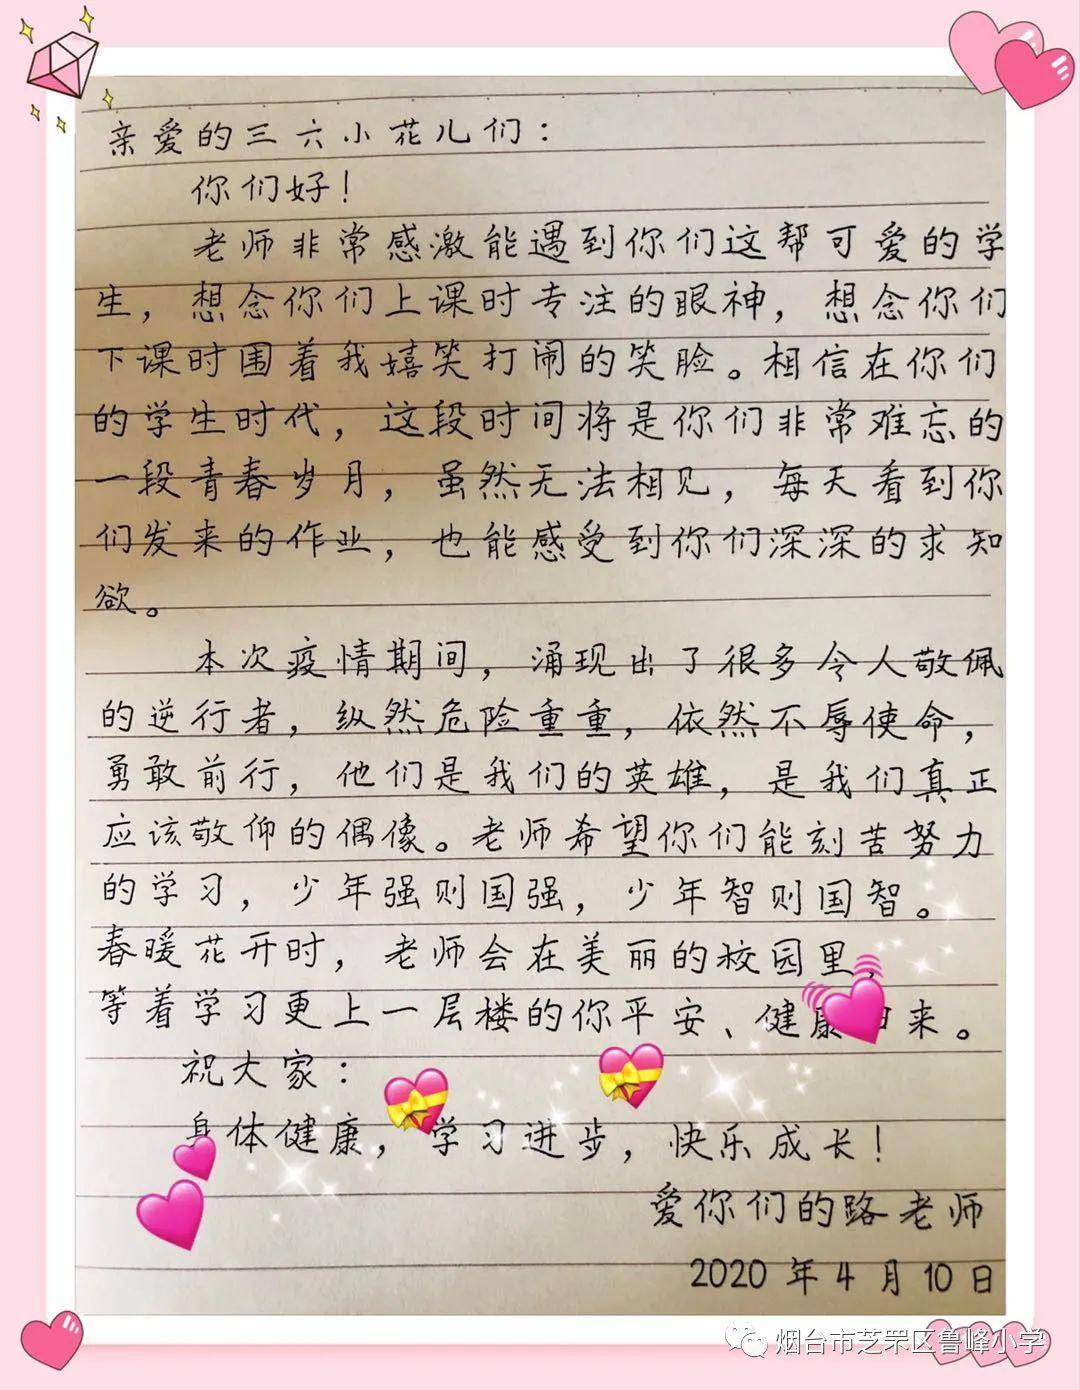 亲爱的三六小花儿们：
你们好！
老师非常感激能遇到你们这帮可爱的学
生，想念你们上课时专注的眼神，想念你们
下课时围着我嬉笑打闹的笑脸。相信在你们
的学生时代，这段时间将是你们非常难忘的
一段青春岁月，虽然无法相见，每天看到你
们发来的作业，也能感受到你们深深的求知
欲。
本次疫情期间，涌现出了很多令人敬佩
的逆行者，纵然危险重重，依然不辱使命，
勇敢前行，他们是我们的英雄，是我们真正
应该敬仰的偶像。老师希望你们能刻苦努力
的学习，少年强则国强，少年智则国智。
春暖花开时，老师会在美丽的校园里，
等着学习更上一层楼的你平安、健康归来。
祝大家：
身体健康，学习进步，快乐成长！
爱你们的路老师
2020年4月10日
烟台市芝罘区鲁峰小学